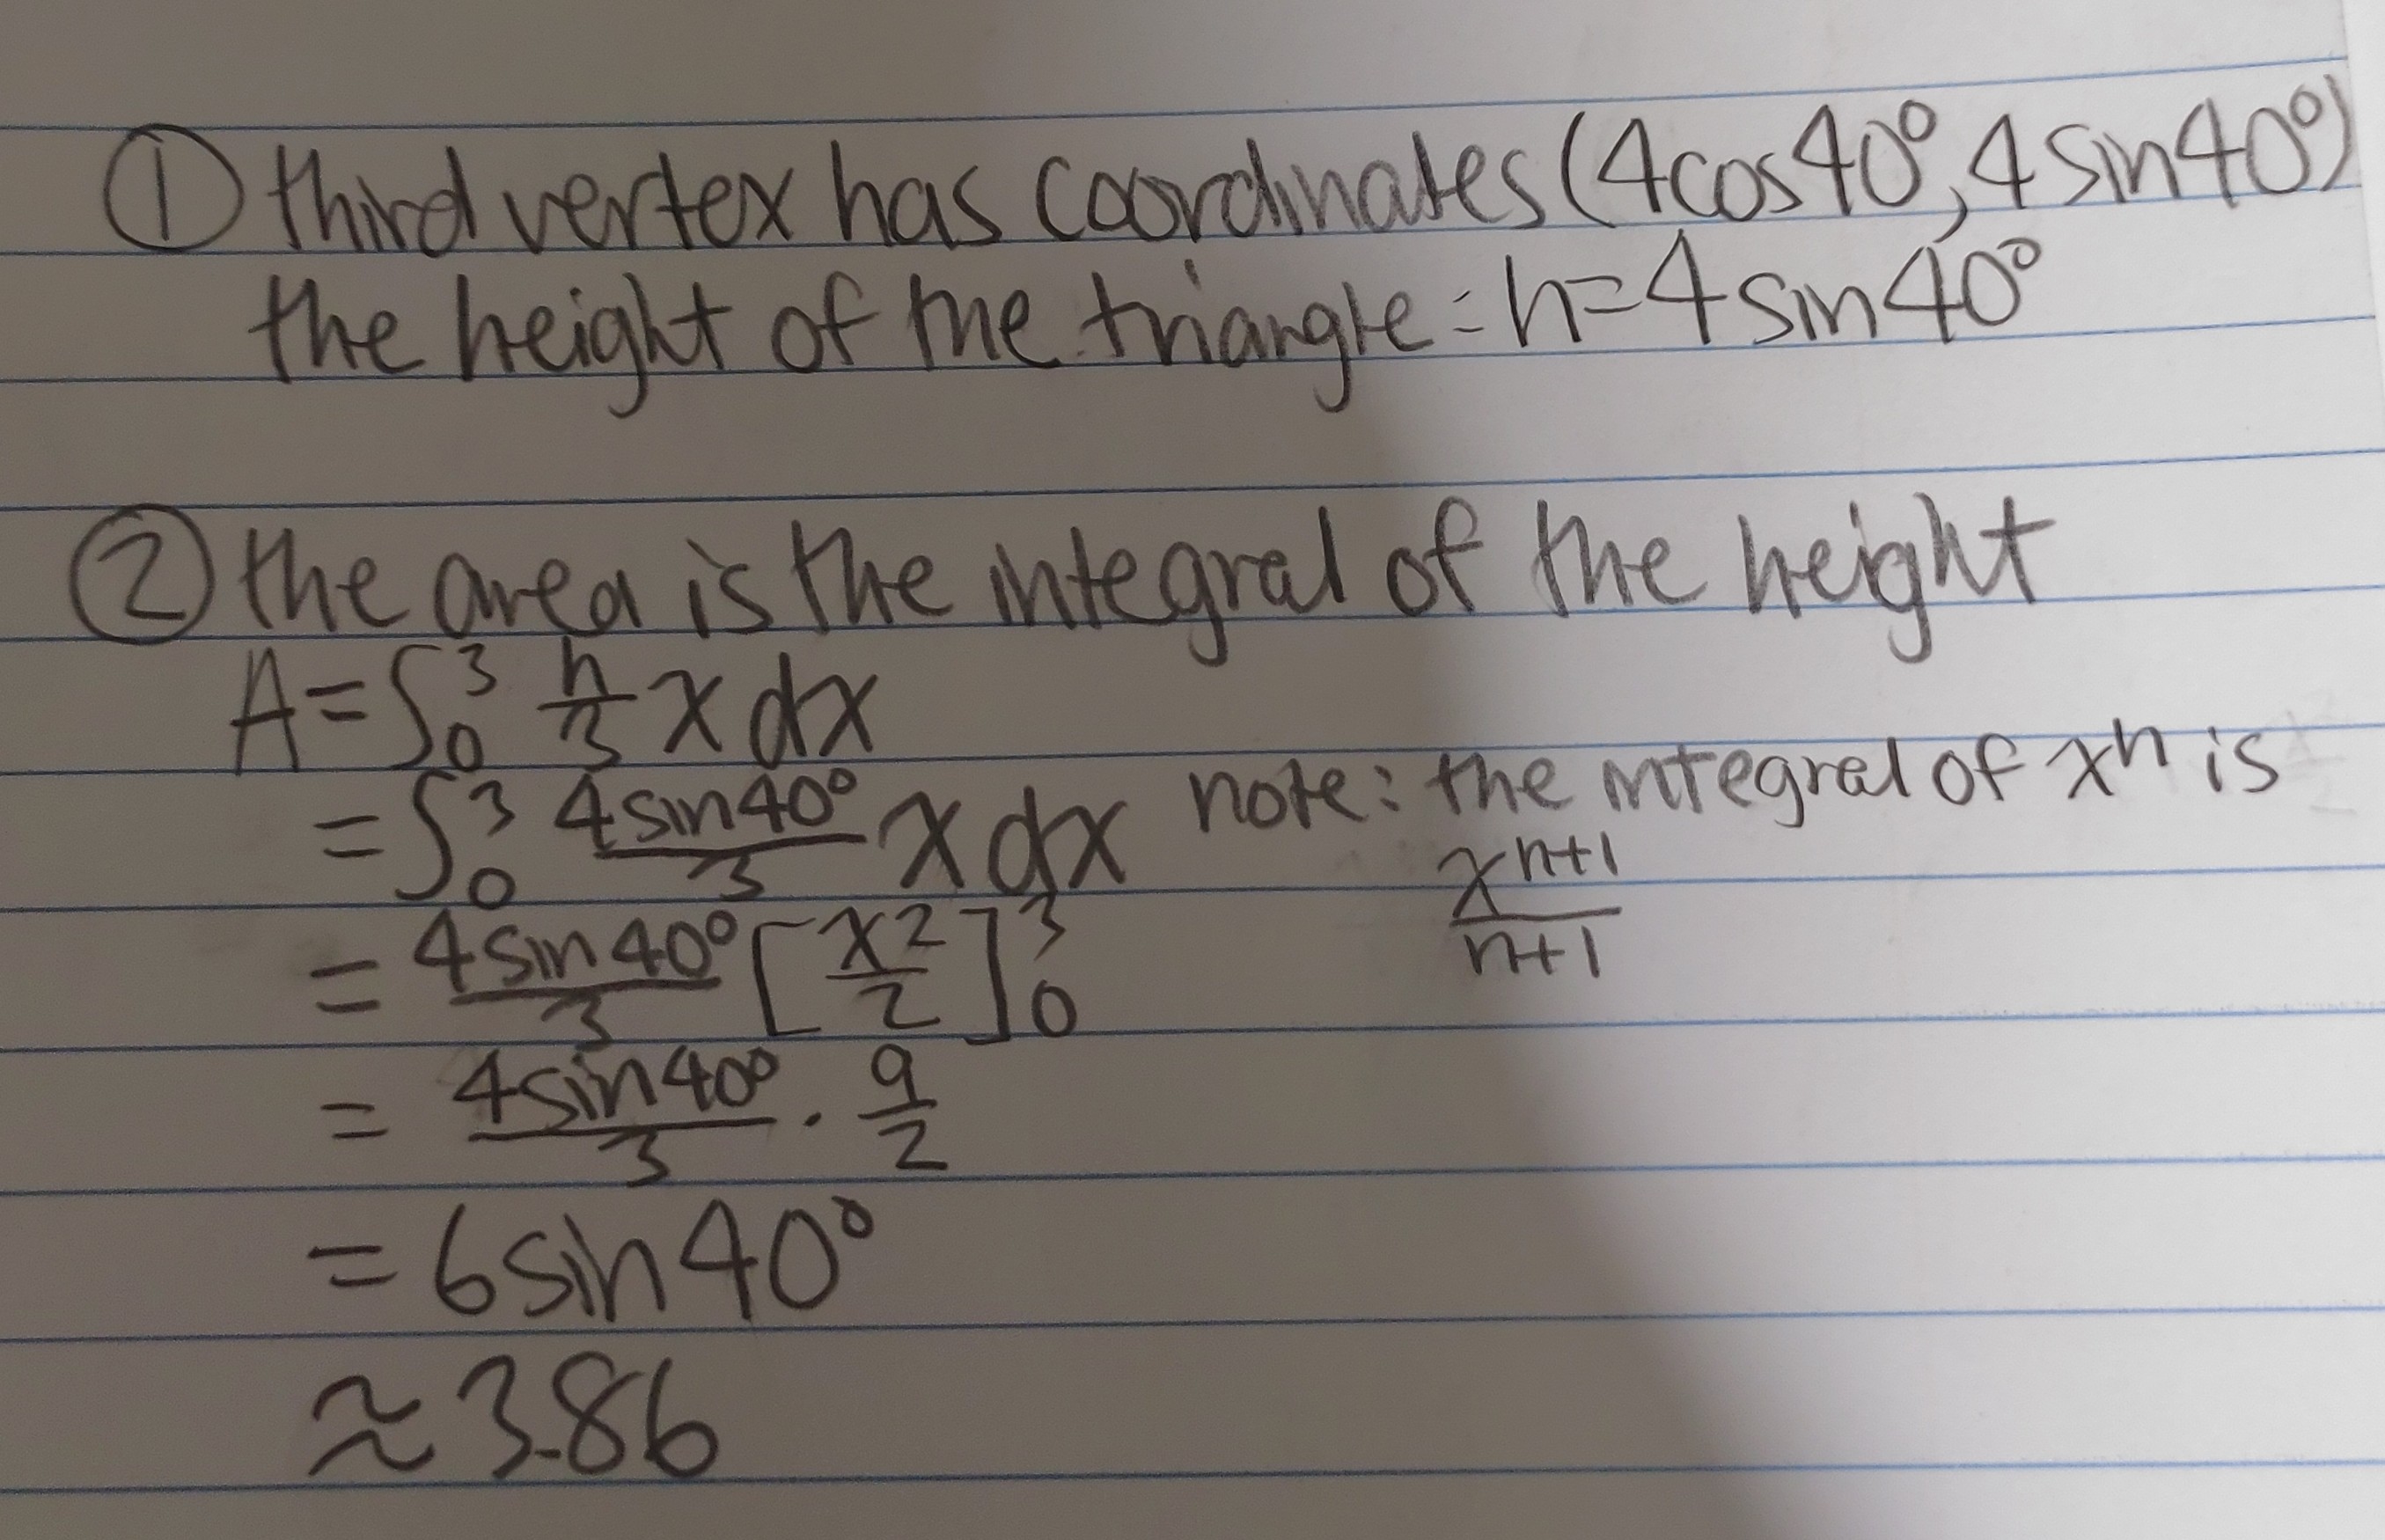 ① third vertex has coordinates (4cos40°, 4sin40°)
the height of the triangle = h=4sin40°
② the area is the integral of the height
A=∫₀³ h/3 x dx
=∫₀³ 4sin40°/3 x dx note: the integral of xⁿ is
xⁿ⁺¹/n+1
= 4sin40°/3 [x²/2]₀³
= 4sin40°/3 · 9/2
= 6sin40°
≈ 3.86